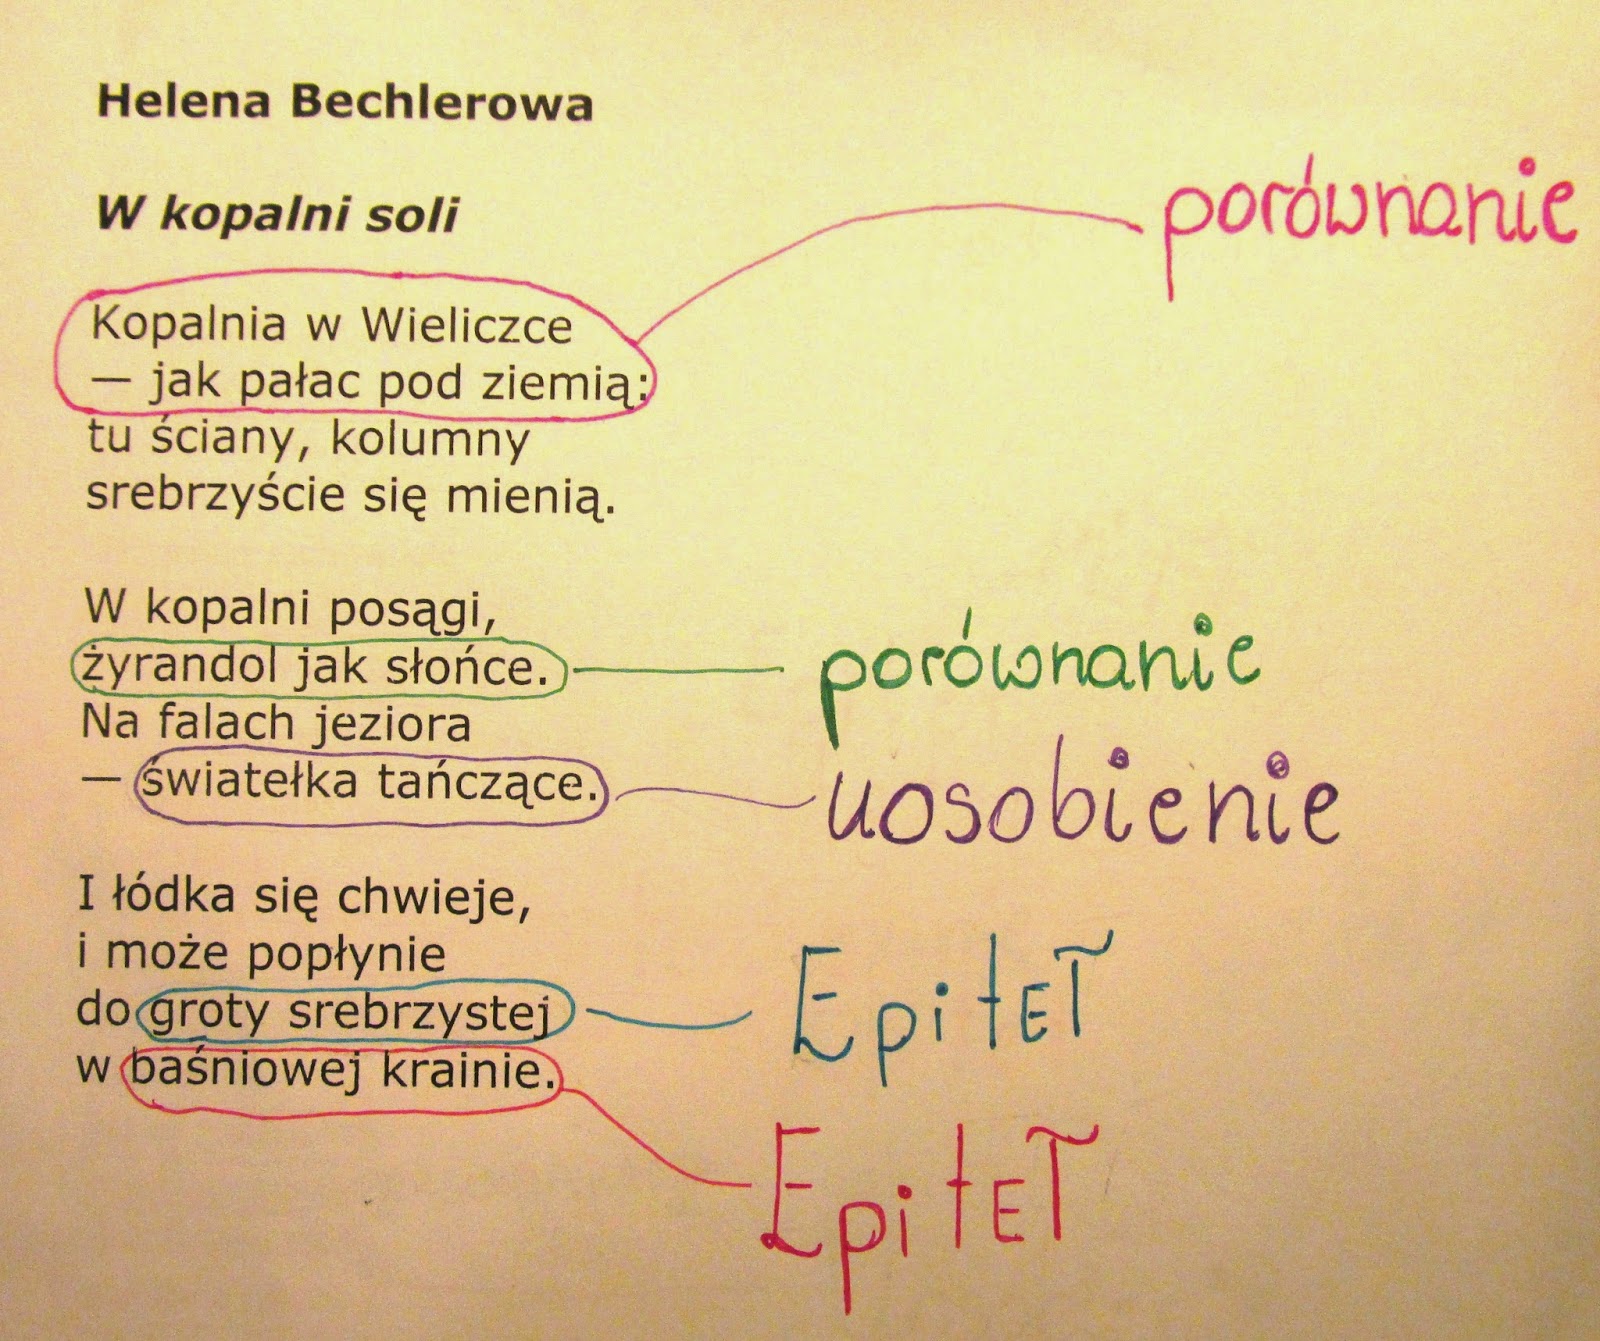 Helena Bechlerowa
W kopalni soli
porównanie
Kopalnia w Wieliczce
— jak pałac pod ziemią:
tu ściany, kolumny
srebrzyście się mienią.
W kopalni posągi,
żyrandol jak słońce.
porównanie
Na falach jeziora
— światełka tańczące.
uosobienie
I łódka się chwieje,
i może popłynie
do groty srebrzystej
EpitET
w baśniowej krainie.
EpitET